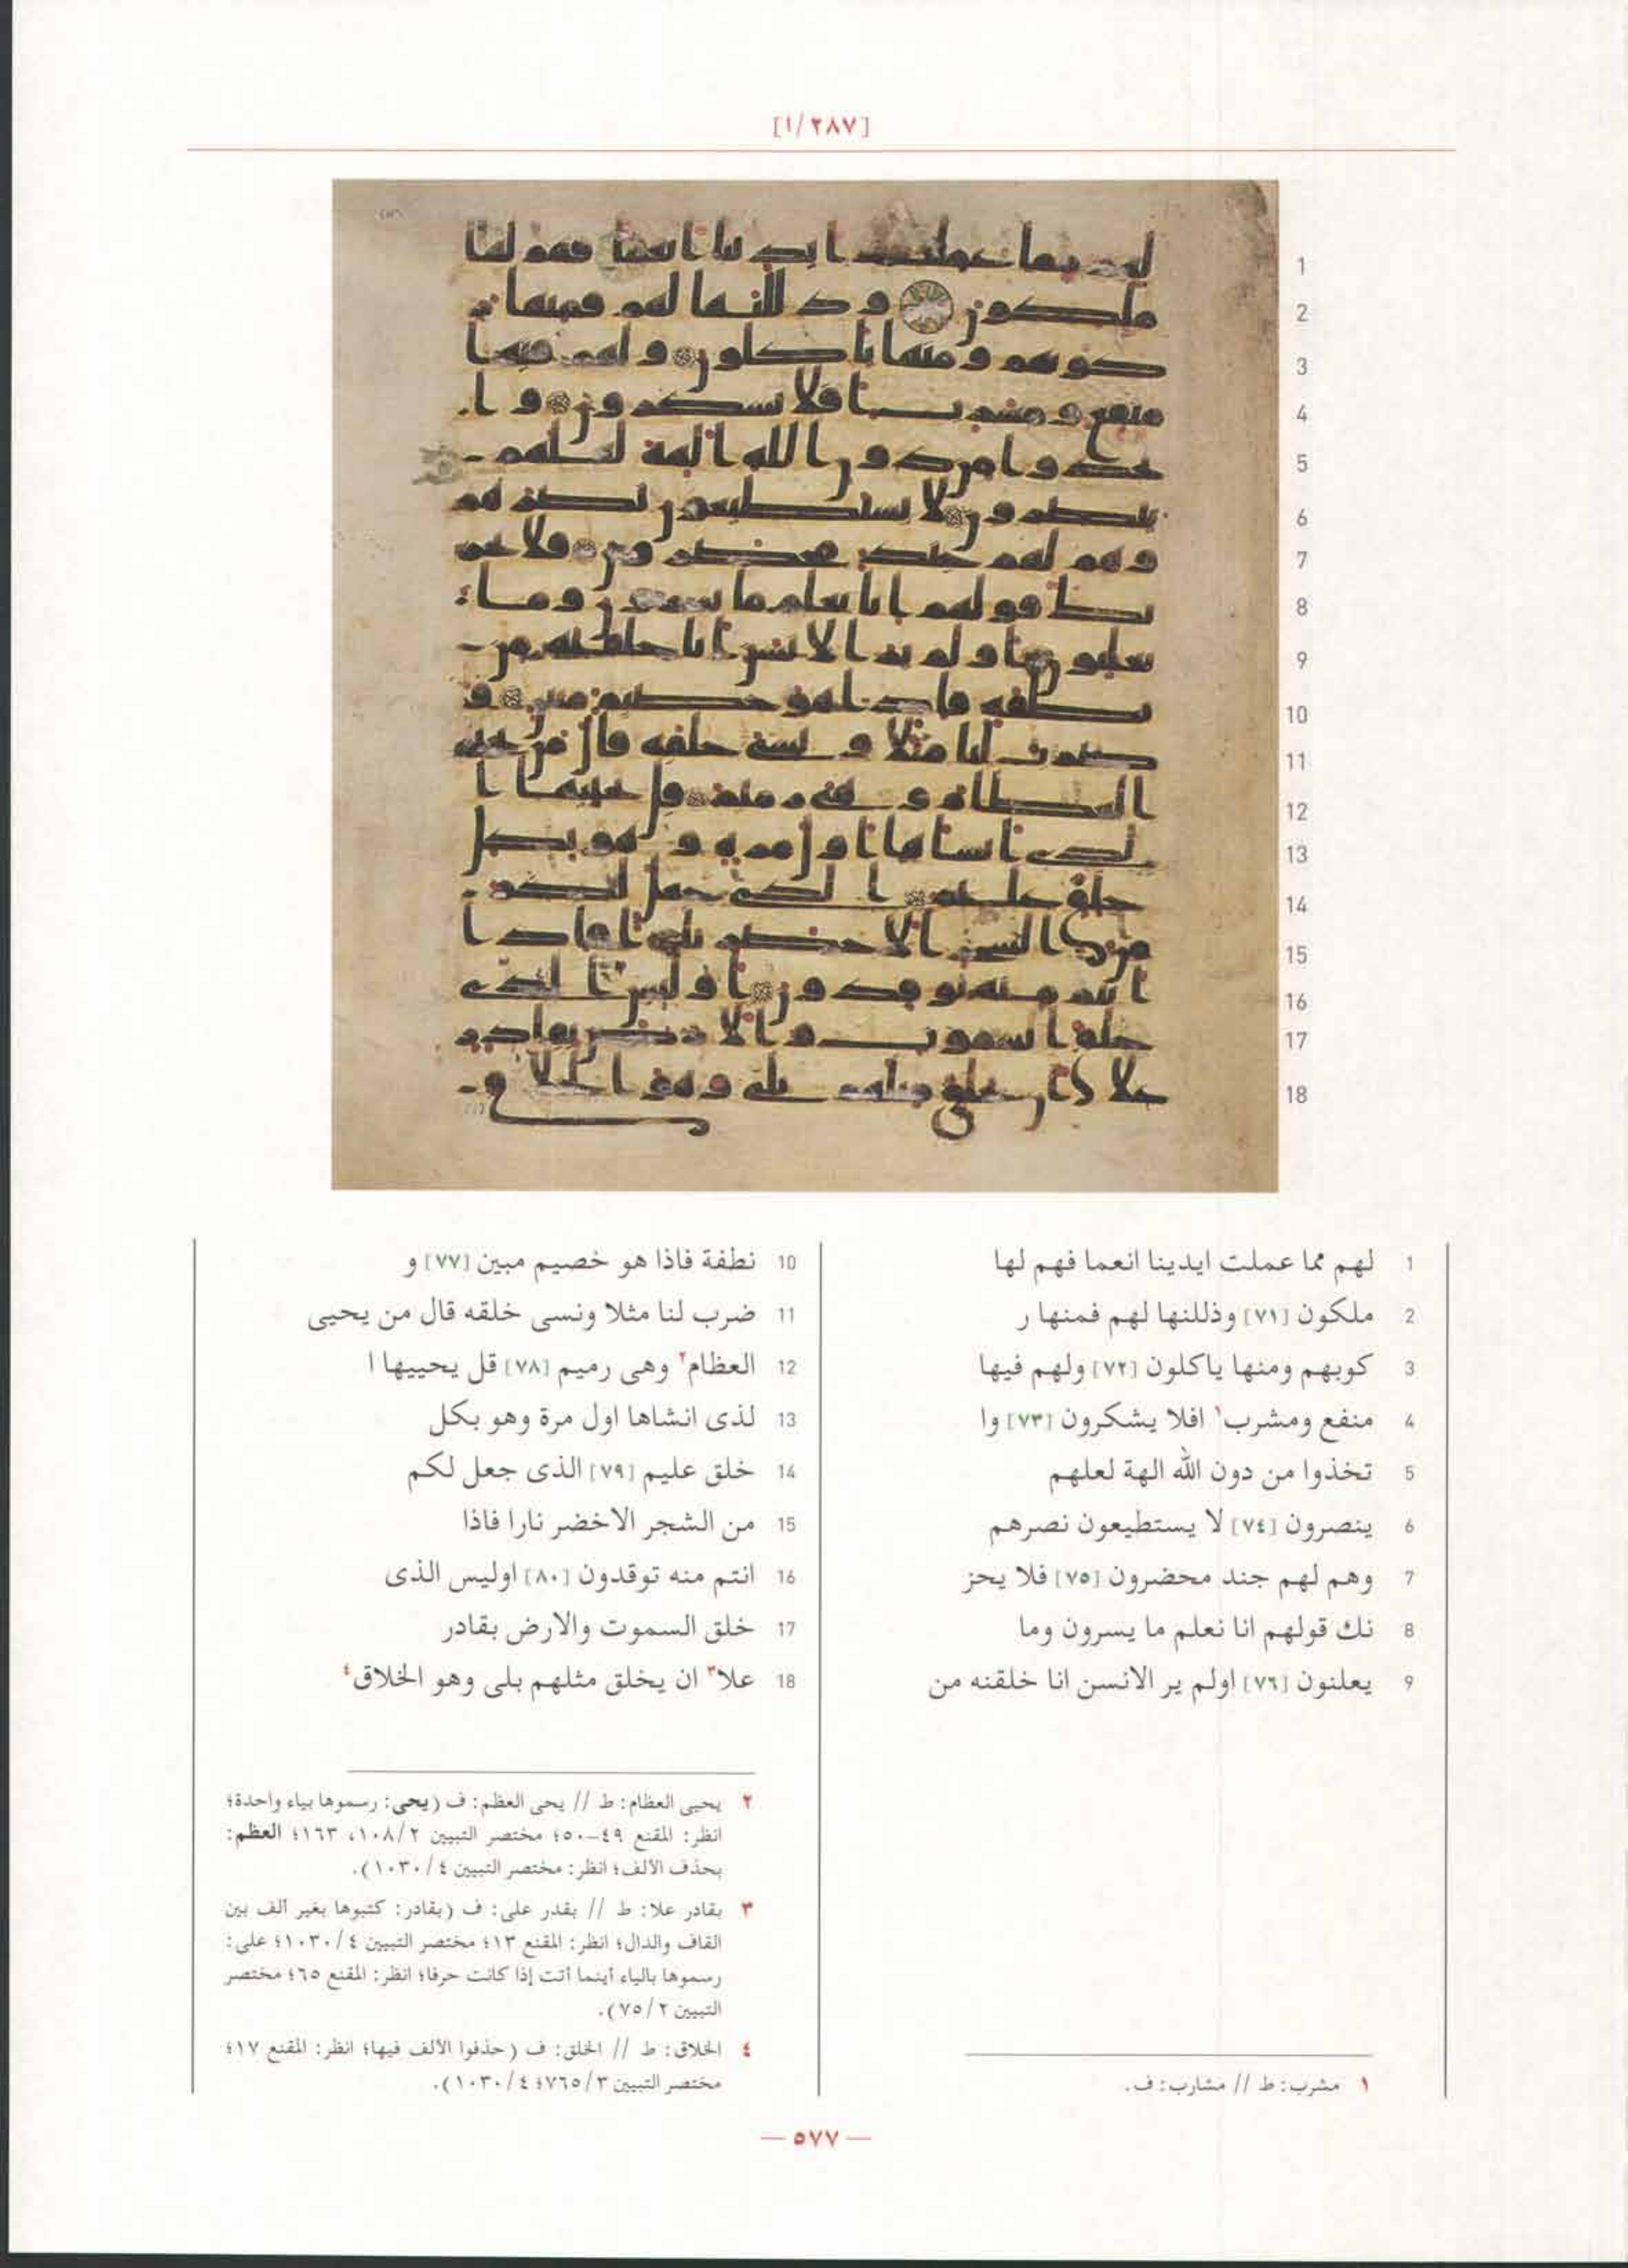 [١/٢٨٧]
1 لهم مما عملت ايدينا انعما فهم لها
2 ملكون [٧١] وذللنها لهم فمنها ر
3 كوبهم ومنها ياكلون [٧٢] ولهم فيها
4 منفع ومشرب١ افلا يشكرون [٧٣] وا
5 تخذوا من دون الله الهة لعلهم
6 ينصرون [٧٤] لا يستطيعون نصرهم
7 وهم لهم جند محضرون [٧٥] فلا يحز
8 نك قولهم انا نعلم ما يسرون وما
9 يعلنون [٧٦] اولم ير الانسن انا خلقنه من
١ مشرب: ط // مشارب: ف.
10 نطفة فاذا هو خصيم مبين [٧٧] و
11 ضرب لنا مثلا ونسى خلقه قال من يحيى
12 العظام٢ وهى رميم [٧٨] قل يحييها ا
13 لذى انشاها اول مرة وهو بكل
14 خلق عليم [٧٩] الذى جعل لكم
15 من الشجر الاخضر نارا فاذا
16 انتم منه توقدون [٨٠] اوليس الذى
17 خلق السموت والارض بقادر
18 علا٣ ان يخلق مثلهم بلى وهو الخلاق٤
٢ يحيى العظام: ط // يحى العظم: ف (يحى: رسموها بياء واحدة؛
انظر: المقنع ٤٩–٥٠؛ مختصر التبيين ١٠٨/٢، ١٦٣؛ العظم:
بحذف الألف؛ انظر: مختصر التبيين ١٠٣٠/٤).
٣ بقادر علا: ط // بقدر على: ف (بقادر: كتبوها بغير ألف بين
القاف والدال؛ انظر: المقنع ١٣؛ مختصر التبيين ١٠٣٠/٤؛ على:
رسموها بالياء أينما أتت إذا كانت حرفا؛ انظر: المقنع ٦٥؛ مختصر
التبيين ٧٥/٢).
٤ الخلاق: ط // الخلق: ف (حذفوا الألف فيها؛ انظر: المقنع ١٧؛
مختصر التبيين ٧٦٥/٣؛ ١٠٣٠/٤).
— ٥٧٧ —